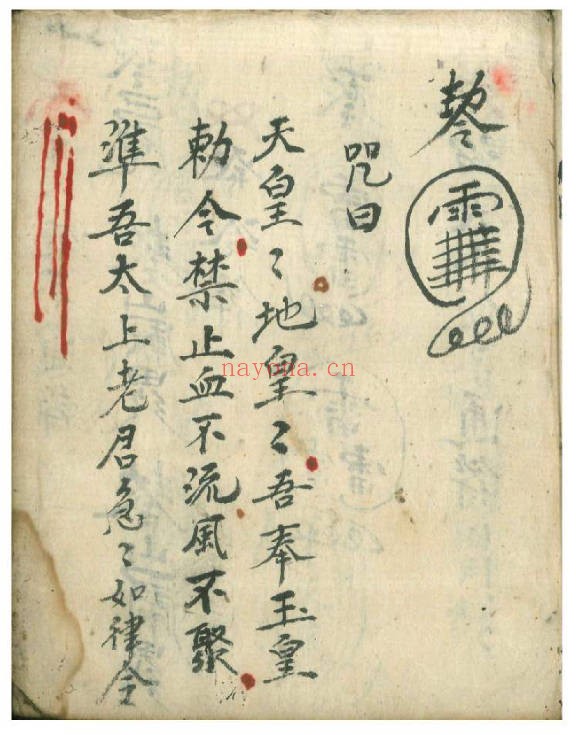 咒曰
天皇〻地皇〻吾奉玉皇
勅令禁止血不流風不聚
準吾太上老君急〻如律令
nayona.cn